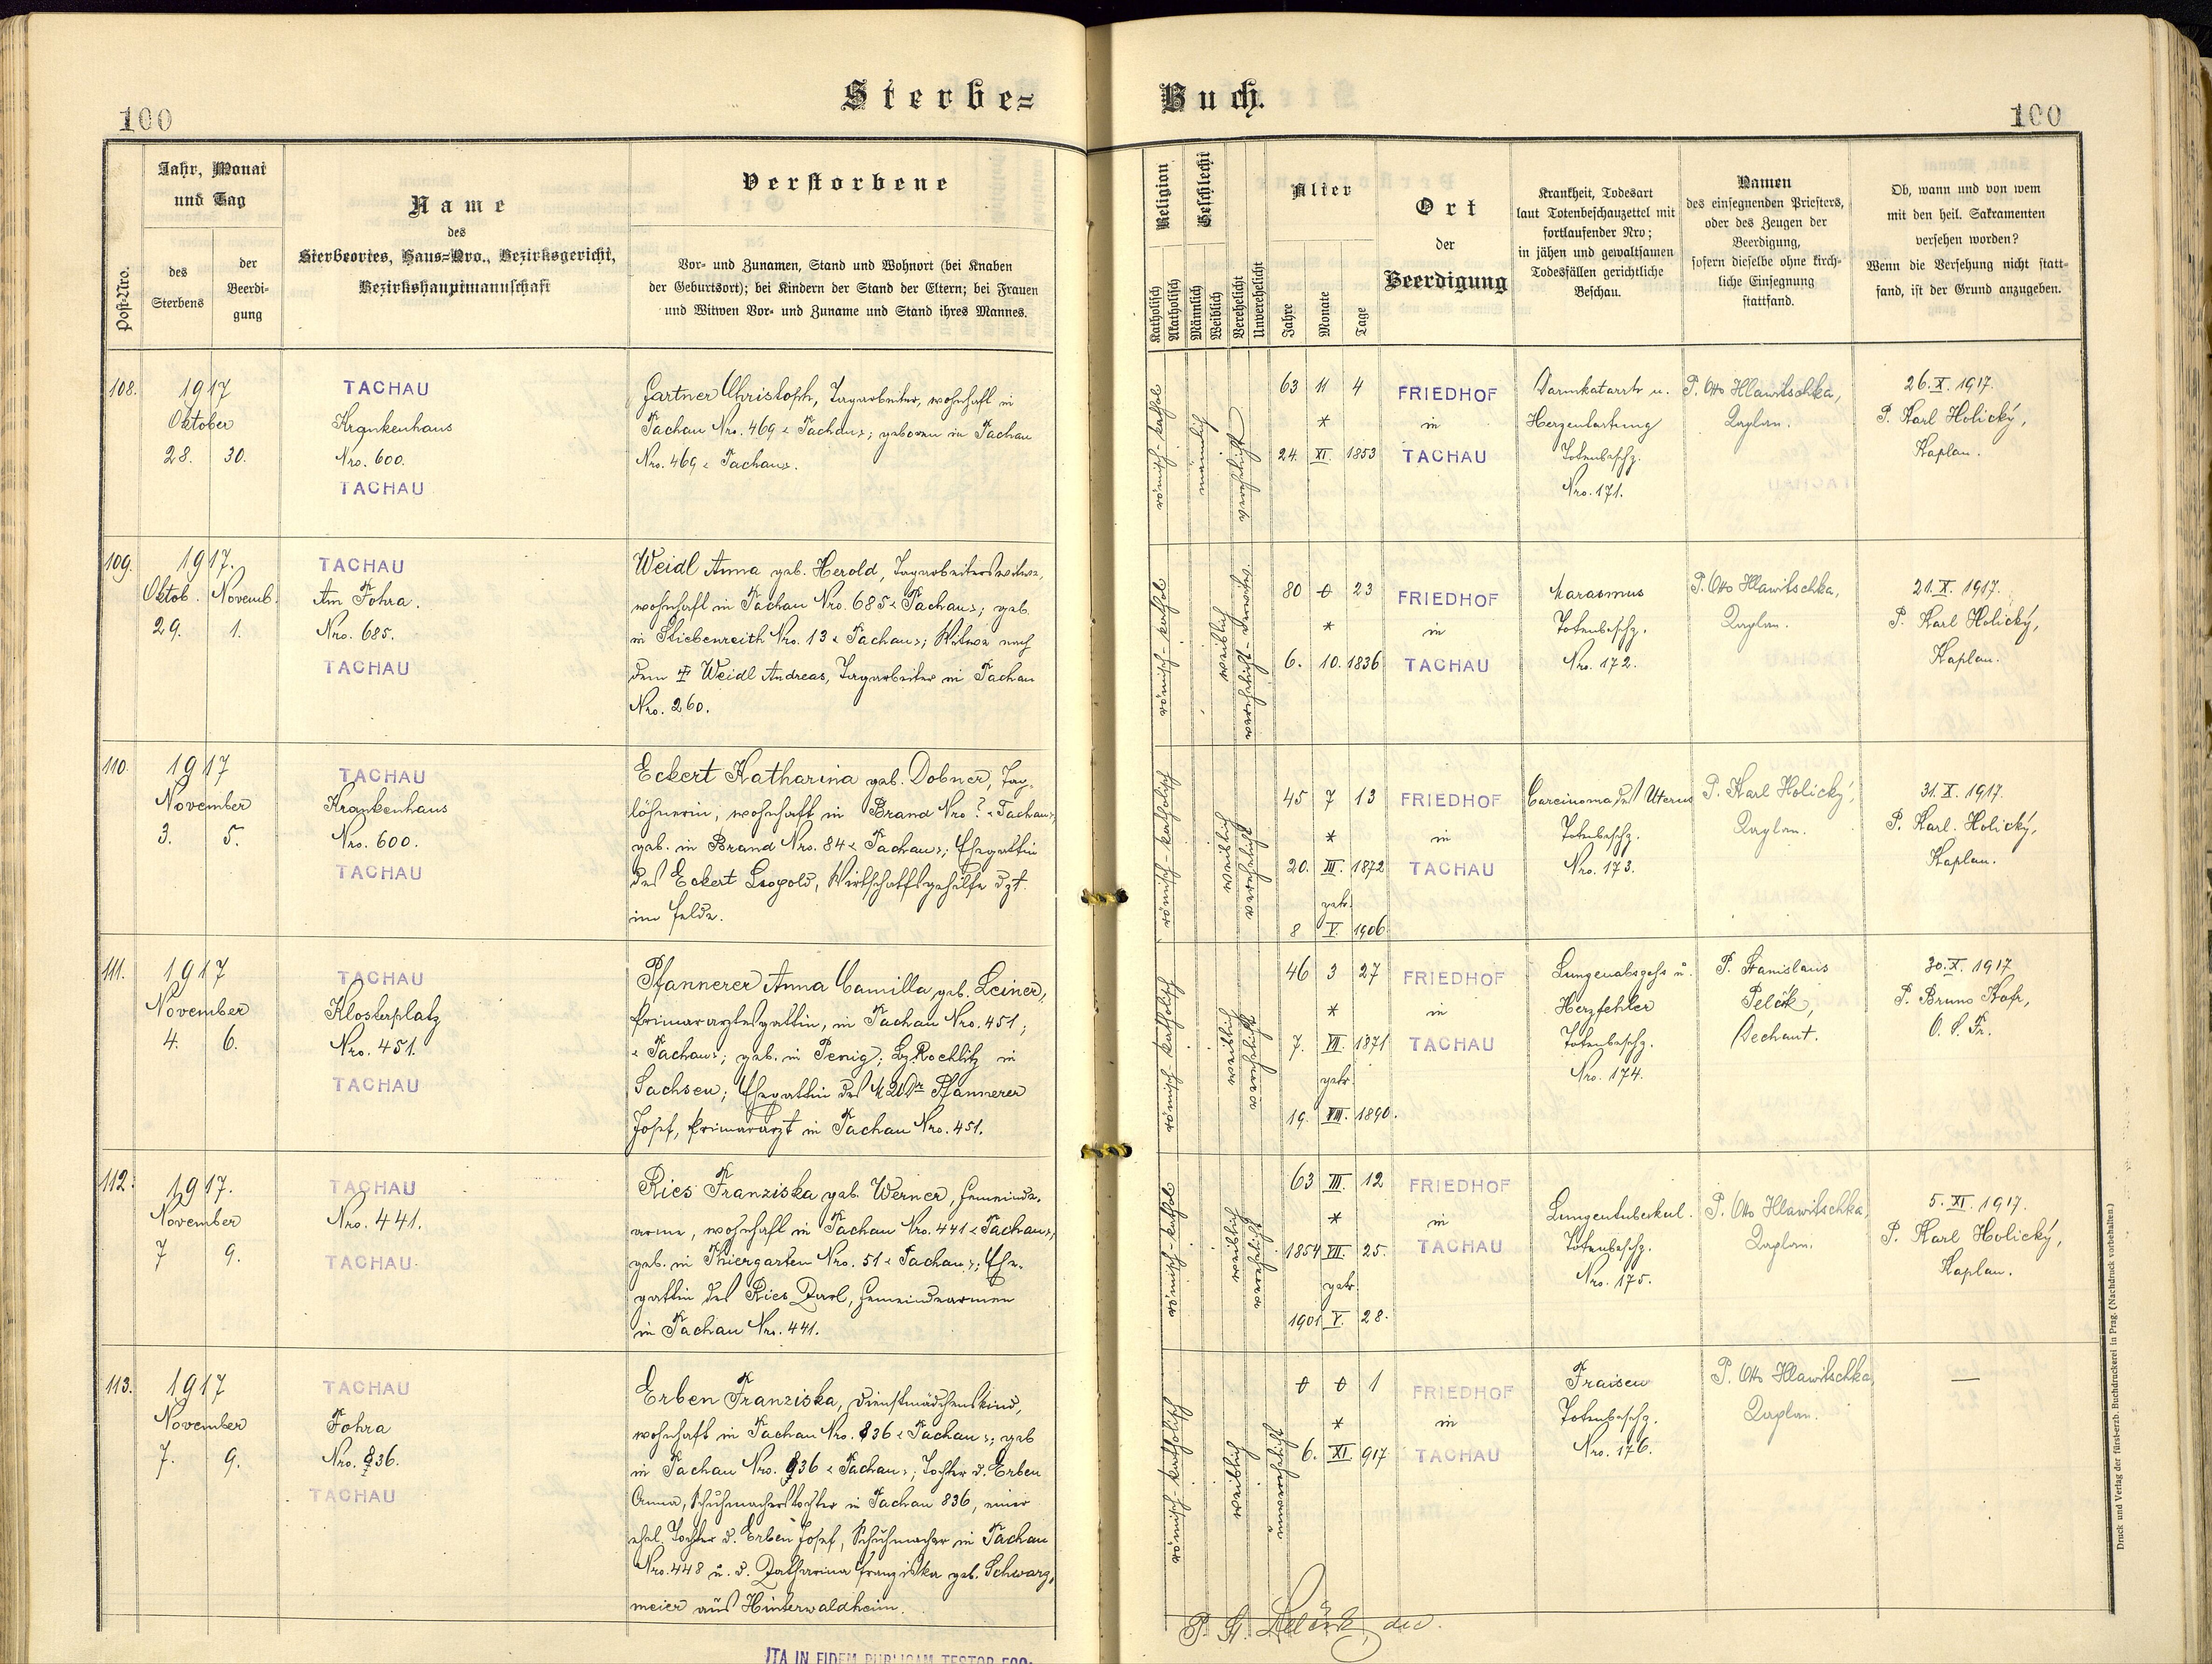 100
Sterbe=
Buch.
100
Post-Nro.
Jahr, Monat
und Tag
des
Sterbens
der
Beerdi-
gung
Name
des
Sterbeortes, Haus=Nro., Bezirksgericht,
Bezirkshauptmannschaft
Verstorbene
Vor- und Zunamen, Stand und Wohnort (bei Knaben
der Geburtsort); bei Kindern der Stand der Eltern; bei Frauen
und Witwen Vor- und Zuname und Stand ihres Mannes.
Religion
Katholisch
Akatholisch
Geschlecht
Männlich
Weiblich
Verehelicht
Unverehelicht
Alter
Jahre
Monate
Tage
Ort
der
Beerdigung
Krankheit, Todesart
laut Totenbeschauzettel mit
fortlaufender Nro;
in jähen und gewaltsamen
Todesfällen gerichtliche
Beschau.
Namen
des einsegnenden Priesters,
oder des Zeugen der
Beerdigung,
sofern dieselbe ohne kirch-
liche Einsegnung
stattfand.
Ob, wann und von wem
mit den heil. Sakramenten
versehen worden?
Wenn die Versehung nicht statt-
fand, ist der Grund anzugeben.
108.
1917
Oktober
28. 30.
TACHAU
Krankenhaus
Nro. 600.
TACHAU
Gartner Christoph, Tagarbeiter, wohnhaft in
Tachau Nro. 469 « Tachau »; geboren in Tachau
Nro. 469 « Tachau ».
römisch-kathol
männlich
verehelicht
63 11 4
*
24. XI. 1853
FRIEDHOF
in
TACHAU
Darmkatarrh u.
Herzentartung
Totenbeschz.
Nro. 171.
P. Otto Hlawitschka,
Kaplan.
26. X. 1917.
P. Karl Holický,
Kaplan.
109.
1917.
Oktob. Novemb.
29. 1.
TACHAU
Am Fohra.
Nro. 685.
TACHAU
Weidl Anna geb. Herold, Tagarbeiterswitwe,
wohnhaft in Tachau Nro. 685 « Tachau »; geb.
in Stiebenreith Nro. 13 « Tachau »; Witwe nach
dem † Weidl Andreas, Tagarbeiter in Tachau
Nro. 260.
römisch-kathol
weiblich
verehelicht-verwitw.
80 0 23
*
6. 10. 1836
FRIEDHOF
in
TACHAU
Marasmus
Totenbeschz.
Nro. 172.
P. Otto Hlawitschka,
Kaplan.
21. X. 1917.
P. Karl Holický,
Kaplan.
110.
1917
November
3. 5.
TACHAU
Krankenhaus
Nro. 600.
TACHAU
Eckert Katharina geb. Dobner, Tag-
löhnerin, wohnhaft in Brand Nro ? « Tachau »,
geb. in Brand Nro. 84 « Tachau »; Ehegattin
des Eckert Leopold, Wirtschaftsgehilfe dzt.
im Felde.
römisch-katholisch
weiblich
verehelicht
45 7 13
*
20. III. 1872
getr.
8 V. 1906
FRIEDHOF
in
TACHAU
Carcinoma des Uterus
Totenbeschz.
Nro. 173.
P. Karl Holický,
Kaplan.
31. X. 1917.
P. Karl Holický,
Kaplan.
111.
1917
November
4. 6.
TACHAU
Klosterplatz
Nro. 451.
TACHAU
Pfannerer Anna Camilla geb. Leiner,
Primararztesgattin, in Tachau Nro. 451;
« Tachau »; geb. in Penig; Bz. Rochlitz in
Sachsen; Ehegattin des MUDr Pfannerer
Josef, Primararzt in Tachau Nro. 451.
römisch-katholisch
weiblich
verehelicht
46 3 27
*
7. VII. 1871
getr.
19. VIII. 1890.
FRIEDHOF
in
TACHAU
Lungenabszess u.
Herzfehler
Totenbeschz.
Nro. 174.
P. Stanislaus
Dechant.
30. X. 1917
P. Bruno
O. S. Fr.
112.
1917.
November
7 9.
TACHAU
Nro. 441.
TACHAU
Ries Franziska geb. Werner, Gemeinde-
arme, wohnhaft in Tachau Nro. 441 « Tachau »,
geb. in Thiergarten Nro. 51 « Tachau »; Ehe-
gattin des Ries Karl, Gemeindearmen
in Tachau Nro. 441.
römisch-kathol
weiblich
verehelicht
63 III. 12
*
1854 VII. 25.
getr.
1901 V. 28.
FRIEDHOF
in
TACHAU
Lungentuberkul.
Totenbeschz.
Nro. 175.
P. Otto Hlawitschka,
Kaplan.
5. XI. 1917.
P. Karl Holický,
Kaplan.
113.
1917
November
7. 9.
TACHAU
Fohra
Nro. 836.
TACHAU
Erben Franziska, Dienstmädchenskind,
wohnhaft in Tachau Nro. 836 « Tachau »; geb
in Tachau Nro. 836 « Tachau »; Tochter d. Erben
Anna, Schuhmacherstochter in Tachau 836, einer
ehel. Tochter d. Erben Josef, Schuhmacher in Tachau
Nro. 448 u. d. Katharina Franziska geb. Schwarz-
meier aus Hinterwaldheim.
römisch-katholisch
weiblich
unverehelicht
0 0 1
*
6. XI. 917
FRIEDHOF
in
TACHAU
Fraisen
Totenbeschz.
Nro. 176.
P. Otto Hlawitschka,
Kaplan.
—
P. St.
ITA IN FIDEM PUBLICAM TESTOR EGO:
Druck und Verlag der fürsterzb. Buchdruckerei in Prag. (Nachdruck vorbehalten.)